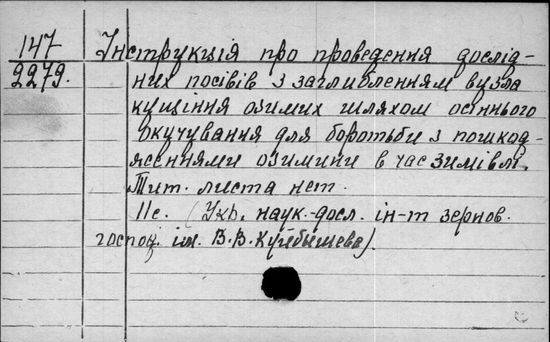 147
2279.
Інструкція про проведення дослід-
них посівів з заглибленням вузла
кущіння озимих шляхом осіннього
окучування для боротьби з пошкод-
женнями озимини в час зимівлі.
Тит. листа нет.
11с. (Укр. наук.-досл. ін-т зернов.
господ. ім. В.В.Куйбышева).